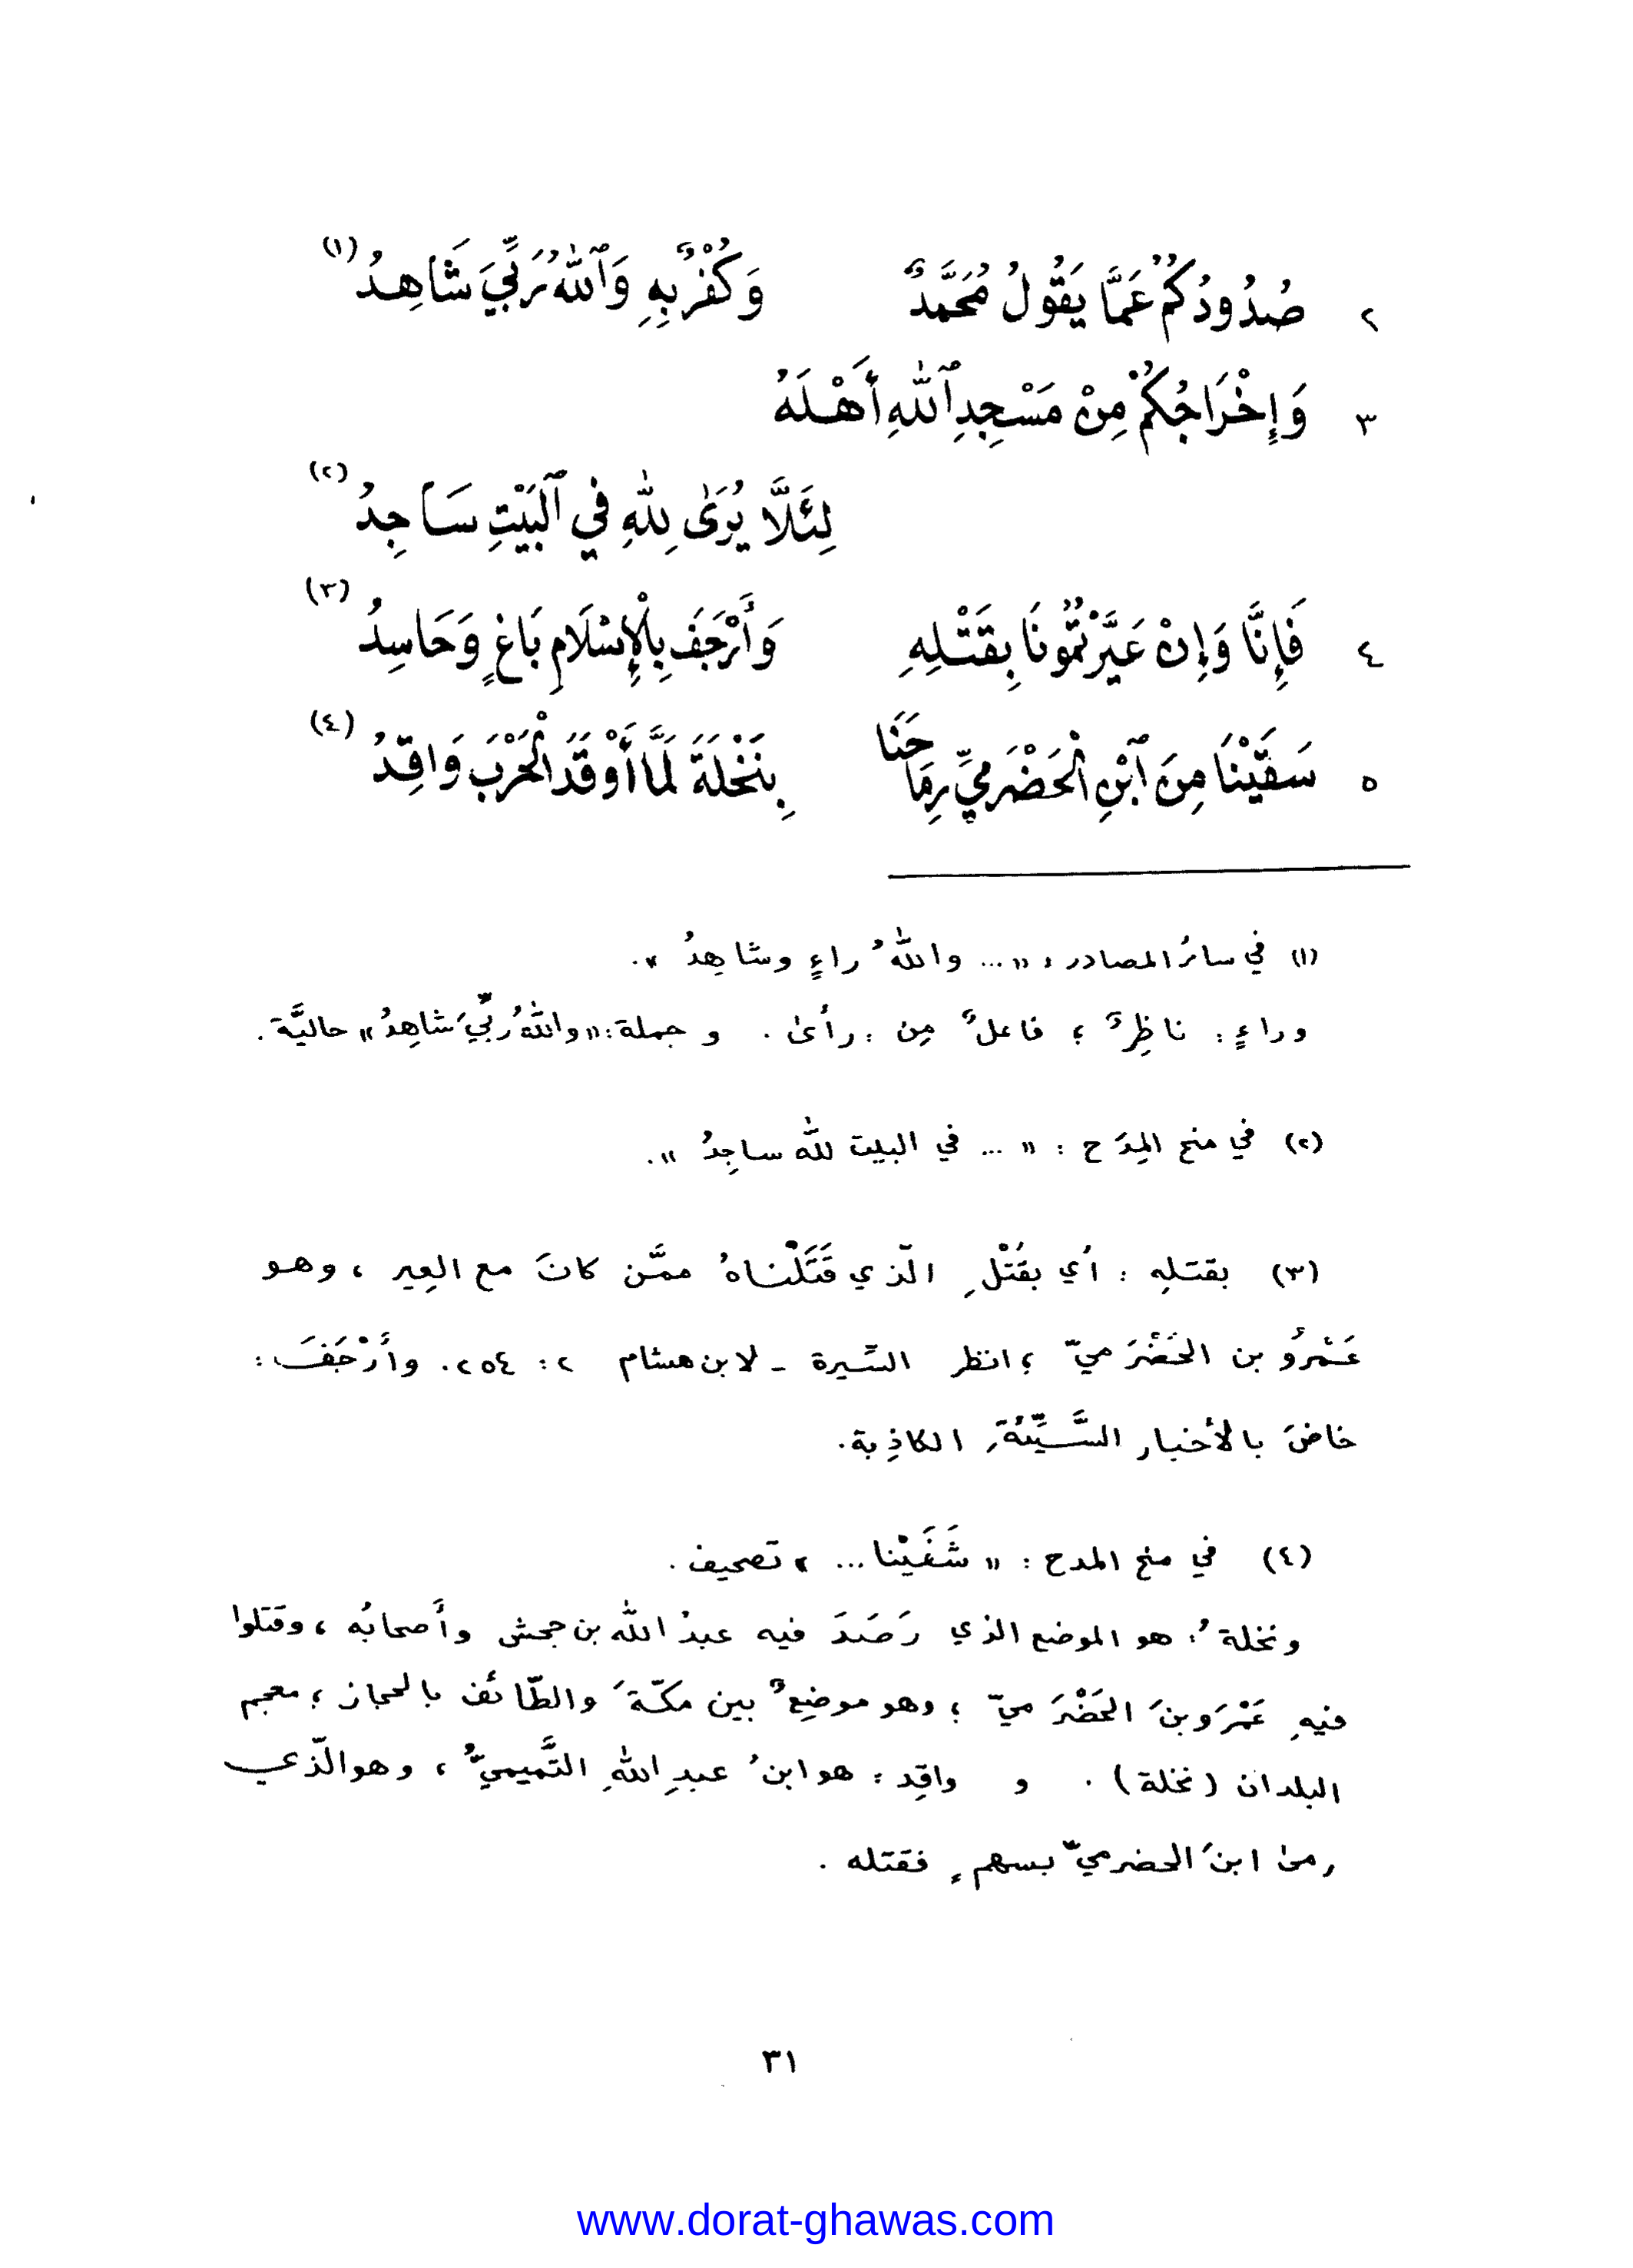 ٢ صُدُودُكُمُ عَمَّا يَقُولُ مُحَمَّدٌ وَكُفْرٌ بِهِ وَٱللهُ رَبِّيَ شَاهِدُ (١)
٣ وَإِخْرَاجُكُمْ مِنْ مَسْجِدِ ٱللهِ أَهْلَهُ
لِئَلَّا يُرَىٰ لِلهِ فِي ٱلْبَيْتِ سَاجِدُ (٢)
٤ فَإِنَّا وَإِنْ عَيَّرْتُمُونَا بِقَتْلِهِ وَأَرْجَفَ بِالْإِسْلَامِ بَاغٍ وَحَاسِدُ (٣)
٥ سَقَيْنَا مِنَ ٱبْنِ الْحَضْرَمِيِّ رِمَاحَنَا بِنَخْلَةَ لَمَّا أَوْقَدَ الْحَرْبَ وَاقِدُ (٤)
(١) في سائر المصادر : « ... واللهُ راءٍ وشاهِدُ » .
وراءٍ : ناظِرٌ ؛ فاعلٌ مِن : رأىٰ . و جملة : « واللهُ ربِّيَ شاهِدُ » حاليَّة .
(٢) في منح المِدَح : « ... في البيت للّه ساجِدُ » .
(٣) بقتلِه : أي بقَتْلِ الّذي قَتَلْناهُ ممَّن كانَ مع العِير ، وهو
عَمْرُو بن الحَضْرَميّ ؛ انظر السِّيرة - لابن هشام ٢ : ٢٥٤ . وأَرْجَفَ :
خاضَ بالأخبار السَّيِّئَةِ الكاذِبة .
(٤) في منح المدح : « شَفَيْنا ... » تصحيف .
ونخلةُ : هو الموضع الذي رَصَدَ فيه عبدُ الله بن جحش وأَصحابُه ، وقتلوا
فيهِ عَمْرَو بنَ الحَضْرَميّ ؛ وهو موضِعٌ بين مكّةَ والطّائف بالحجاز ؛ معجم
البلدان ( نخلة ) . و واقِد : هو ابنُ عبدِ اللهِ التَّميميُّ ، وهو الّذي
رمىٰ ابنَ الحضرميّ بسهمٍ فقتله .
٣١
www.dorat-ghawas.com